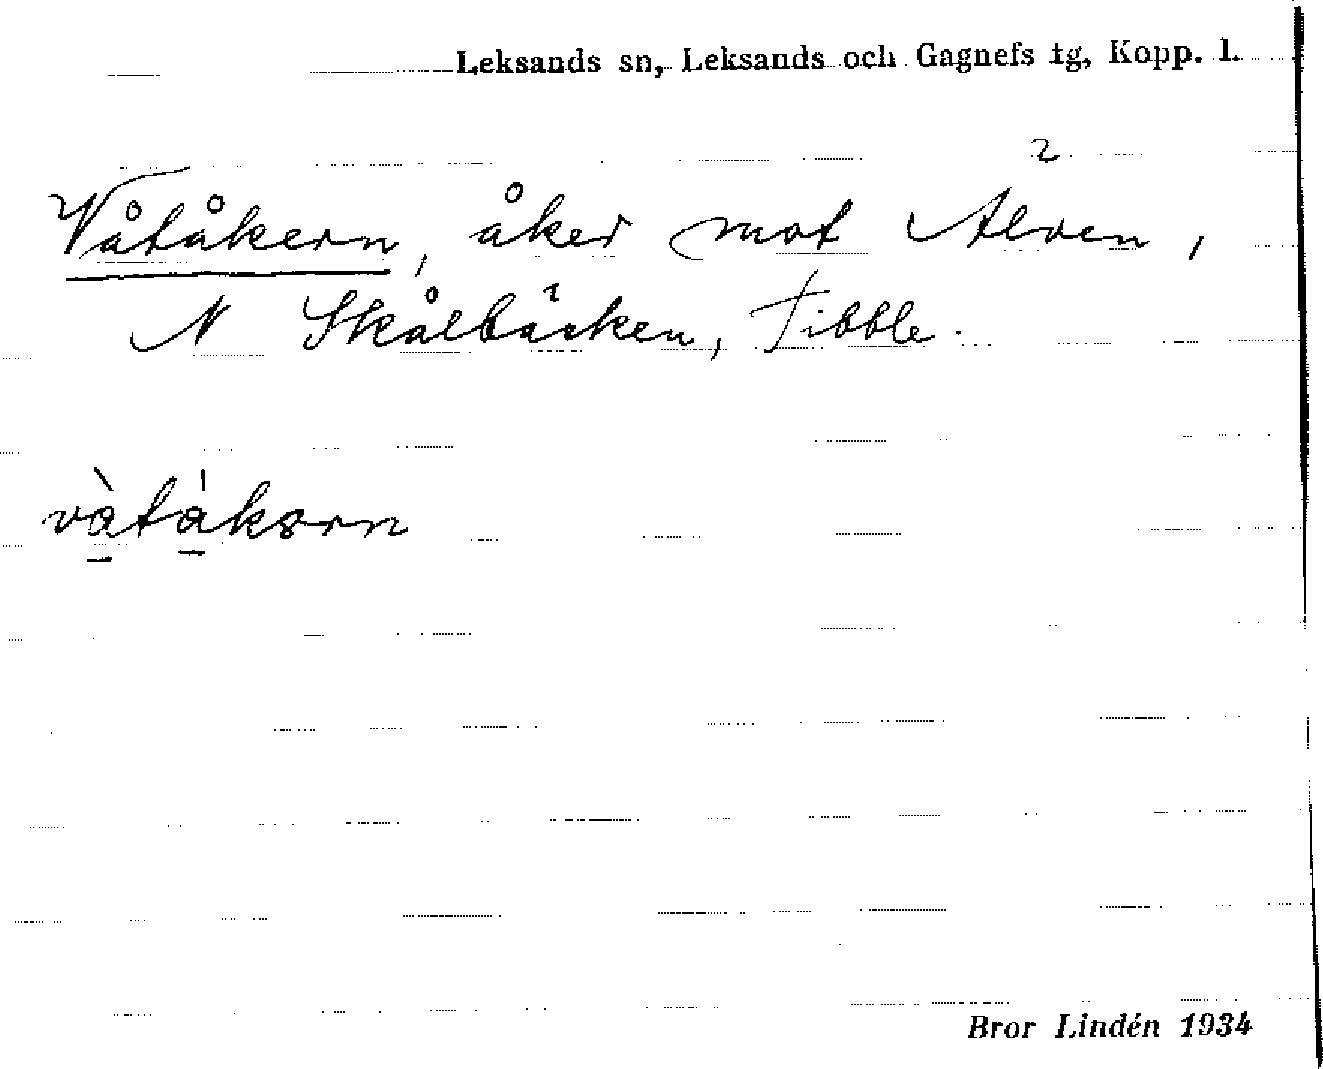 Leksands sn, Leksands och Gagnefs tg, Kopp. l.
Våtåkern, åker mot Älven,
N Skålbäcken, Tibble.
và̱tá̱kərn
Bror Lindén 1934